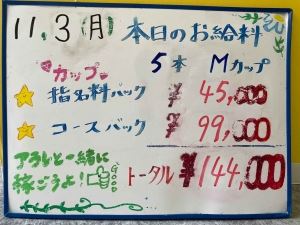 11.3(月) 本日のお給料
カップ 5本 Mカップ
指名料バック ¥45,000
コースバック ¥99,000
アラレと一緒に
稼ごうよ!
GOOD
トータル ¥144,000